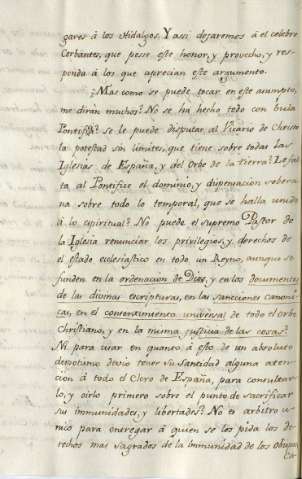 gares á los Hidalgos. Y assi dejaremos á el celebre
Cerbantes, que pesse este honor, y provecho, y res-
ponda á los que aprecian este argumento.
¿Mas como se puede tocar en este asumpto,
me dirán muchos? No se há hecho todo con bula
Pontifiª? se le puede disputar al Vicario de Christo
la potestad sin limites, que tiene sobre todas las
Iglesias de España, y del Orbe de la tierra? Le fal
ta al Pontifice el dominio, y dispensacion sobera
na sobre todo lo temporal, que se halla unido
á lo espiritual? No puede el supremo Pastor de
la Iglesia renunciar los privilegios, y derechos de
el estado eclesiastico en todo un Reyno, aunque se
funden en la ordenacion de Dios, y en los documentos
de las divinas escripturas, en las sanciones canoni-
cas, en el consentimiento universal de todo el orbe
Christiano, y en la misma justicia de las cosas?
Ni para vivar en quanto á esto, de un absoluto
devio tener su Santidad alguna aten-
cion á todo el Clero de España, para consultar
lo, y oirlo primero sobre el punto de sacrificar
su immunidades, y libertades? No es arbitro u-
nico para entregar á quien se los pida los de-
rechos mas sagrados de la immunidad de los Obispos